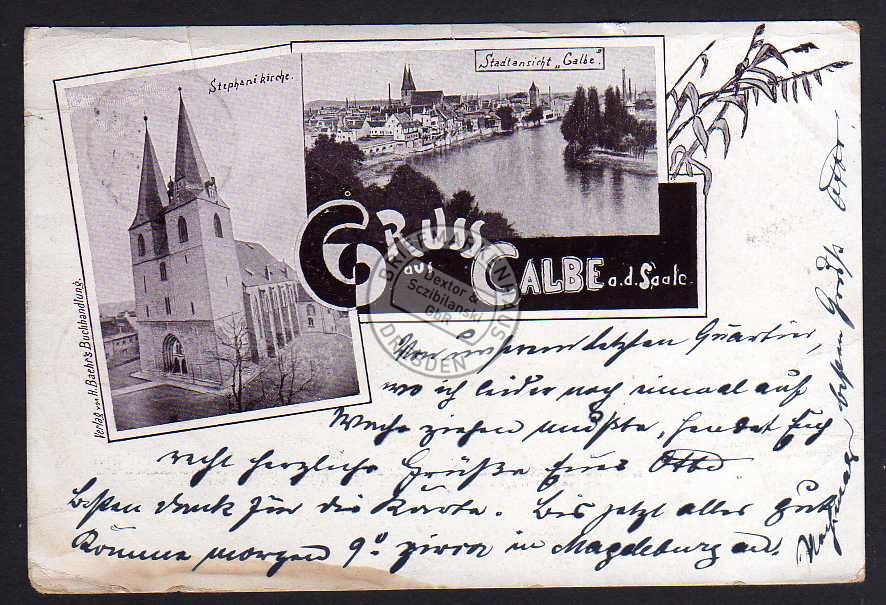 Stephanikirche.
Stadtansicht „Calbe".
Gruss
aus
Calbe a.d. Saale
Verlag von H. Baehr's Buchhandlung.
BRIEFMARKENHAUS
Dextor &
Sczibilanski
GbR
DRESDEN
Von unserem letzten Quartier,
wo ich leider noch einmal auf
Wache ziehen mußte, sendet Euch
recht herzliche Grüße Euer Otto
Besten Dank für die Karte. Bis jetzt alles gut
Komme morgen 9º zirca in Magdeburg an.
Nochmals besten Gruß Otto.